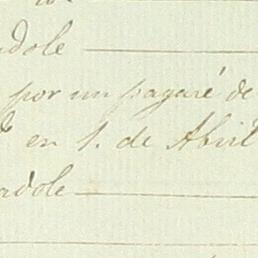 adole
por un pagaré de
en 1. de Abril
adole